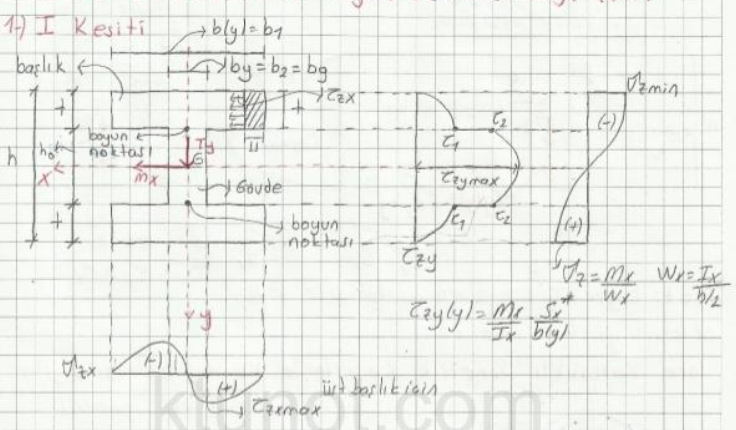 1-) I Kesiti
b(y)=b1
by=b2=bg
başlık
τzx
σzmin
t
boyun noktası
Ty
G
h
h0
x
mx
Gövde
t
boyun noktası
u
τ1
τ2
τzymax
τ1
τ2
τzy
(-)
(+)
σz=Mx/Wx Wx=Ix/h/2
τzy(y)=Mx/Ix·Sx*/b(y)
y
σzx
(-)
(+)
τzxmax
üst başlık için
ktunot.com